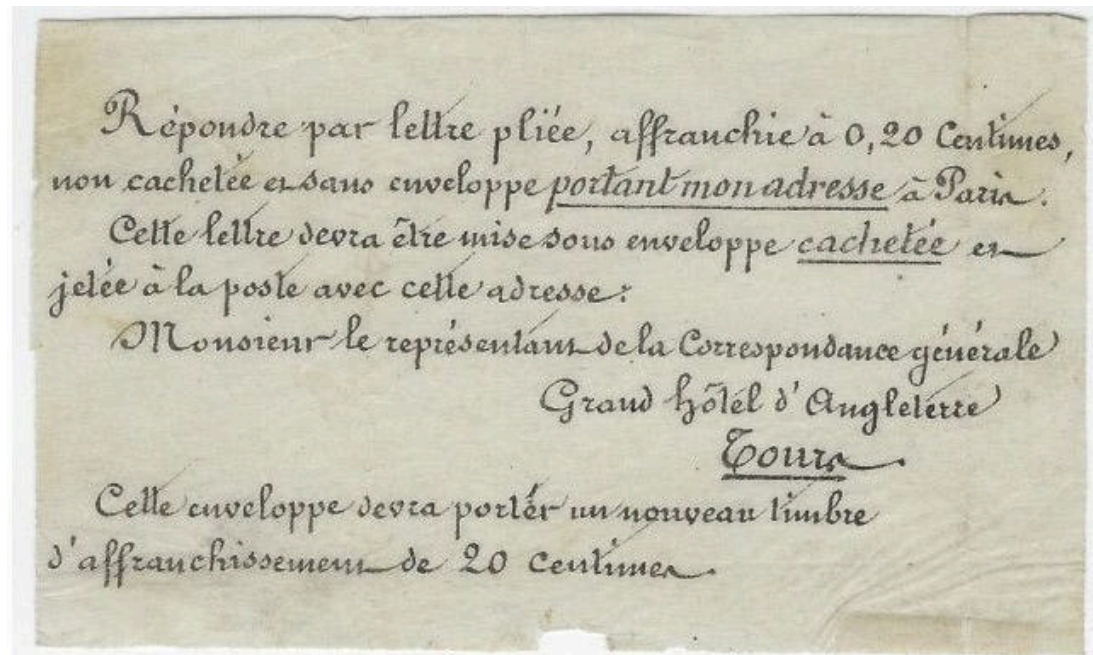 Répondre par lettre pliée, affranchie à 0,20 Centimes,
non cachetée et sans enveloppe portant mon adresse à Paris.
Cette lettre devra être mise sous enveloppe cachetée et
jetée à la poste avec cette adresse:
Monsieur le représentant de la Correspondance générale
Grand hôtel d'Angleterre
Tours.
Cette enveloppe devra porter un nouveau timbre
d'affranchissement de 20 Centimes.